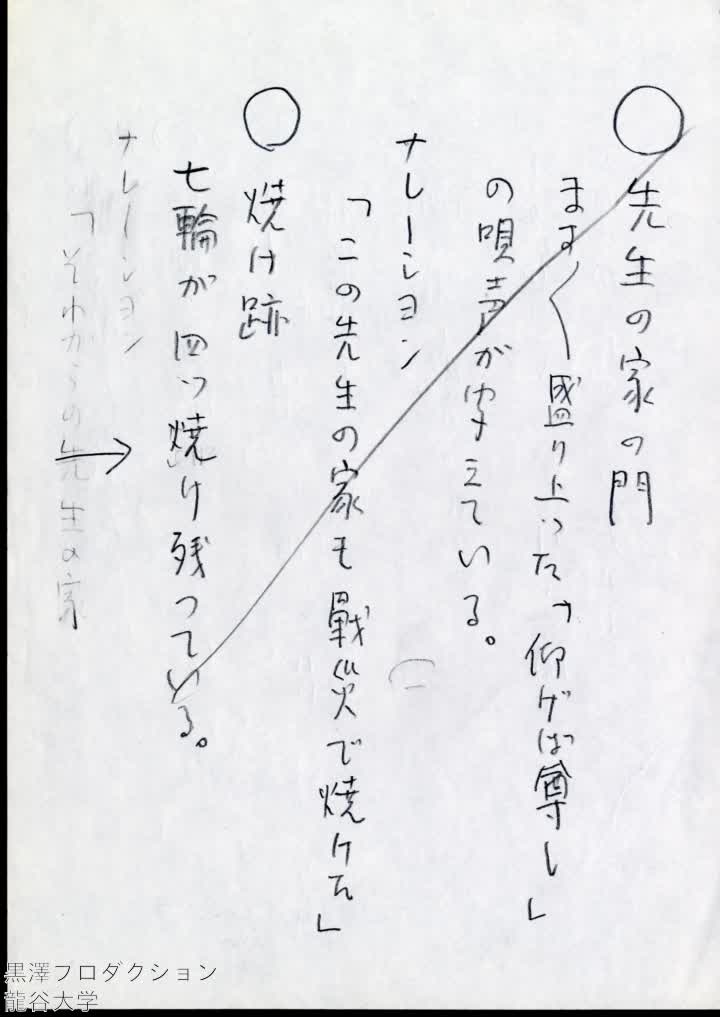 ○
先生の家の門
ます〱盛り上った「仰げば尊し」
の唄声が聞えている。
ナレーション
「この先生の家も戰災で焼けた」
○
焼け跡
七輪が四ツ焼け残っている。
ナレーション
「それからの先生の家
黒澤プロダクション
龍谷大学